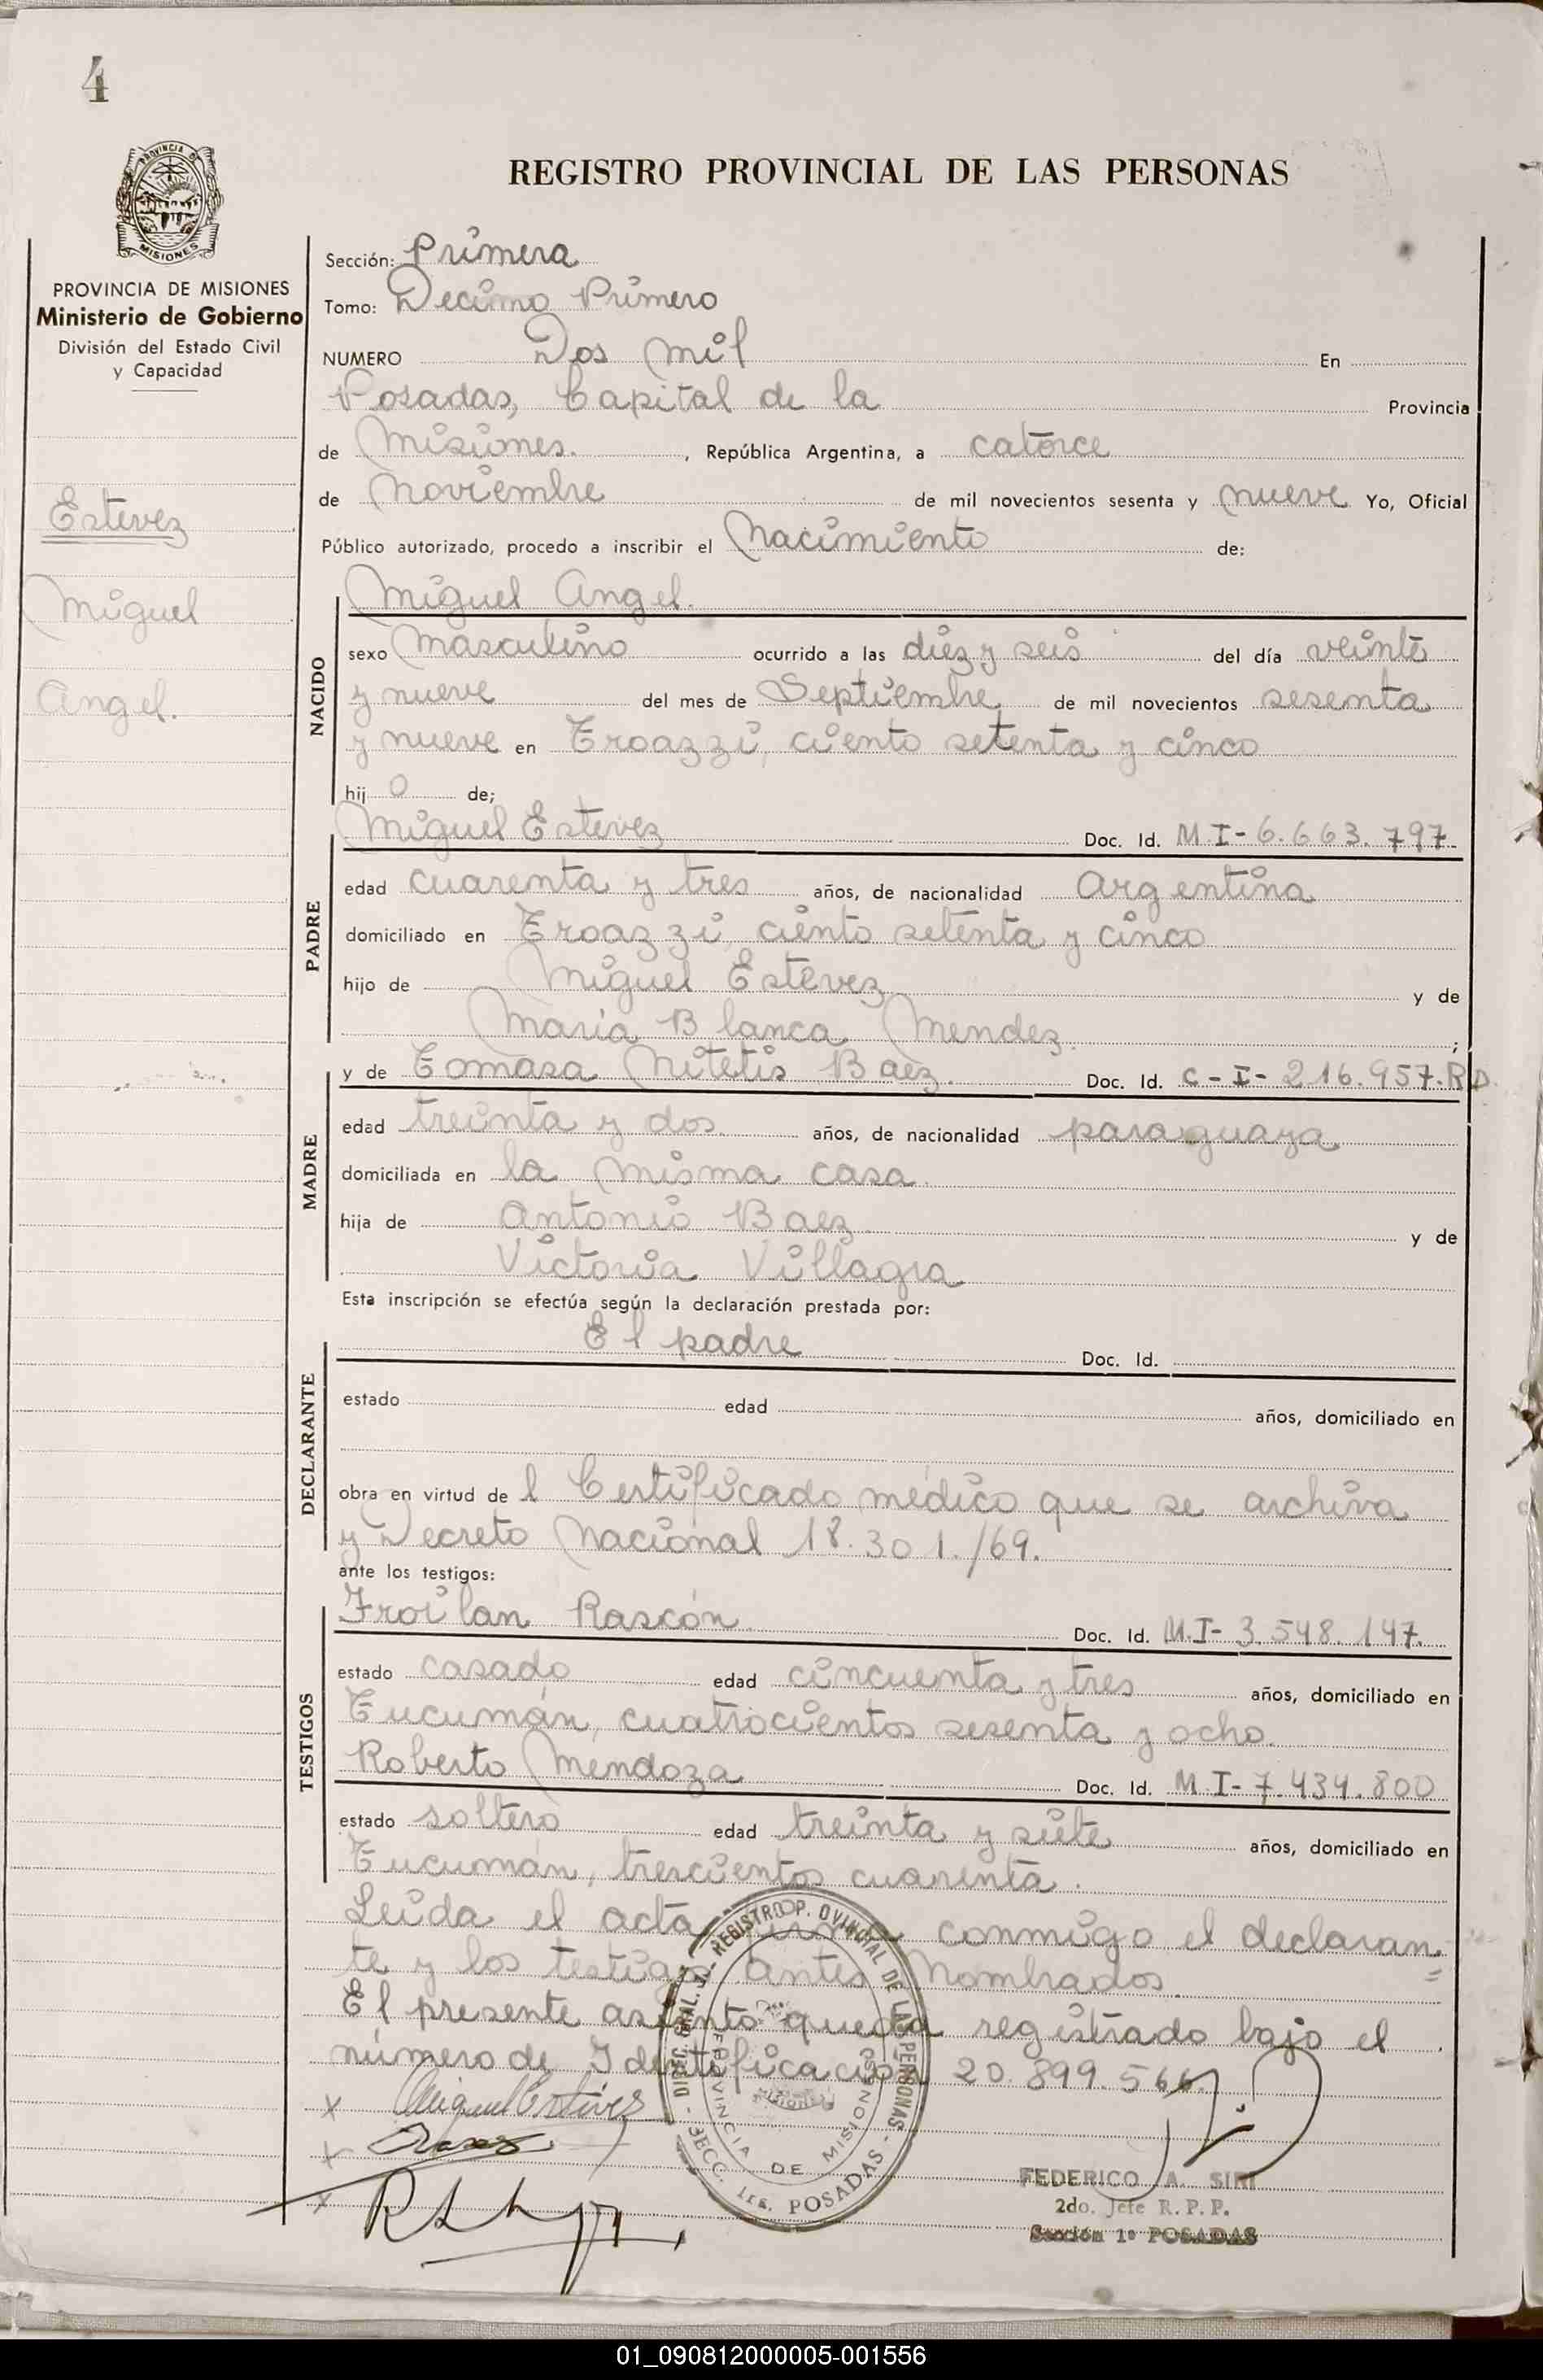 4
PROVINCIA DE
MISIONES
PROVINCIA DE MISIONES
Ministerio de Gobierno
División del Estado Civil
y Capacidad
Estevez
Miguel
Angel.
REGISTRO PROVINCIAL DE LAS PERSONAS
Sección: Primera
Tomo: Decimo Primero
NUMERO Dos mil En
Posadas, Capital de la Provincia
de Misiones. , República Argentina, a catorce
de Noviembre de mil novecientos sesenta y nueve Yo, Oficial
Público autorizado, procedo a inscribir el Nacimiento de:
NACIDO
Miguel Angel.
sexo Masculino ocurrido a las diez y seis del día veinte
y nueve del mes de Septiembre de mil novecientos sesenta
y nueve en Troazzi, ciento setenta y cinco
hij o de;
PADRE
Miguel Estevez Doc. Id. M.I-6.663.797.
edad cuarenta y tres años, de nacionalidad Argentina
domiciliado en Troazzi ciento setenta y cinco
hijo de Miguel Estevez y de
Maria Blanca Mendez. ;
MADRE
y de Tomasa Nitetis Baez. Doc. Id. C-I-216.957.R.D.
edad treinta y dos. años, de nacionalidad paraguaya
domiciliada en la misma casa.
hija de Antonio Baez y de
Victoria Villagra
Esta inscripción se efectúa según la declaración prestada por:
DECLARANTE
El padre Doc. Id.
estado edad años, domiciliado en
obra en virtud de l Certificado médico que se archiva
y Decreto Nacional 18.301./69.
ante los testigos:
TESTIGOS
Froilan Rascón Doc. Id. M.I-3.548.147.
estado casado edad cincuenta y tres años, domiciliado en
Tucumán, cuatrocientos sesenta y ocho.
Roberto Mendoza Doc. Id. M.I-7.434.800
estado soltero edad treinta y siete años, domiciliado en
Tucuman, trescientos cuarenta.
Leida el acta firma conmigo el declaran=
te y los testigos antes Nombrados.
El presente asiento queda registrado bajo el
número de Identificación 20.899.566.
x Miguel Estevez
x
x
DIREC. GRAL. DEL REGISTRO PROVINCIAL DE LAS PERSONAS - SECC. 1ra. POSADAS -
PROVINCIA DE MISIONES
MISIONES
FEDERICO A. SIRI
2do. Jefe R. P. P.
Sección 1ª POSADAS
01_090812000005-001556